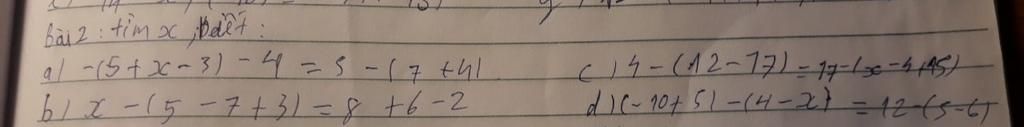 bài 2: tìm x, biết:
a) -(5 + x - 3) - 4 = 5 - (7 + 4)
c) 4 - (12 - 17) = 17 - (x - 4 + 15)
b) x - (5 - 7 + 3) = 8 + 6 - 2
d) (-10 + 5) - (4 - x) = 12 - (5 - 6)